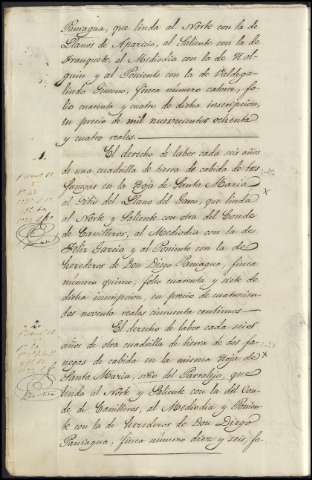 Paniagua, que linda al Norte con la de
Llanos de Aparicio, al Saliente con la de
al Mediodia con la de Hol-
guin y al Poniente con la de
finca número catorce, fo-
lio cuarenta y cuatro de dicha inscripcion,
en precio de mil nuevecientos ochenta
y cuatro reales.
1.
El derecho de labor cada seis años
de una cuadrilla de tierra de cabida de tres
fanegas en la Hoja de Santa Maria
al sitio del Llano del que linda
al Norte y Saliente con otra del Conde
de Canilleros, al Mediodia con la de
Felix Garcia y al Poniente con la de
Herederos de Don Diego Paniagua, finca
número quince, folio cuarenta y siete de
dicha inscripcion, en precio de cuatrocien-
tos noventa reales cincuenta centimos.
2.
El derecho de labor cada seis
años de otra cuadrilla de tierra de dos fa-
negas de cabida en la misma Hoja de
Santa Maria, sitio del Parralejo, que
linda al Norte y Saliente con la del Con-
de de Canilleros, al Mediodia y Ponien-
te con la de Herederos de Don Diego
Paniagua, finca número diez y seis, fo-